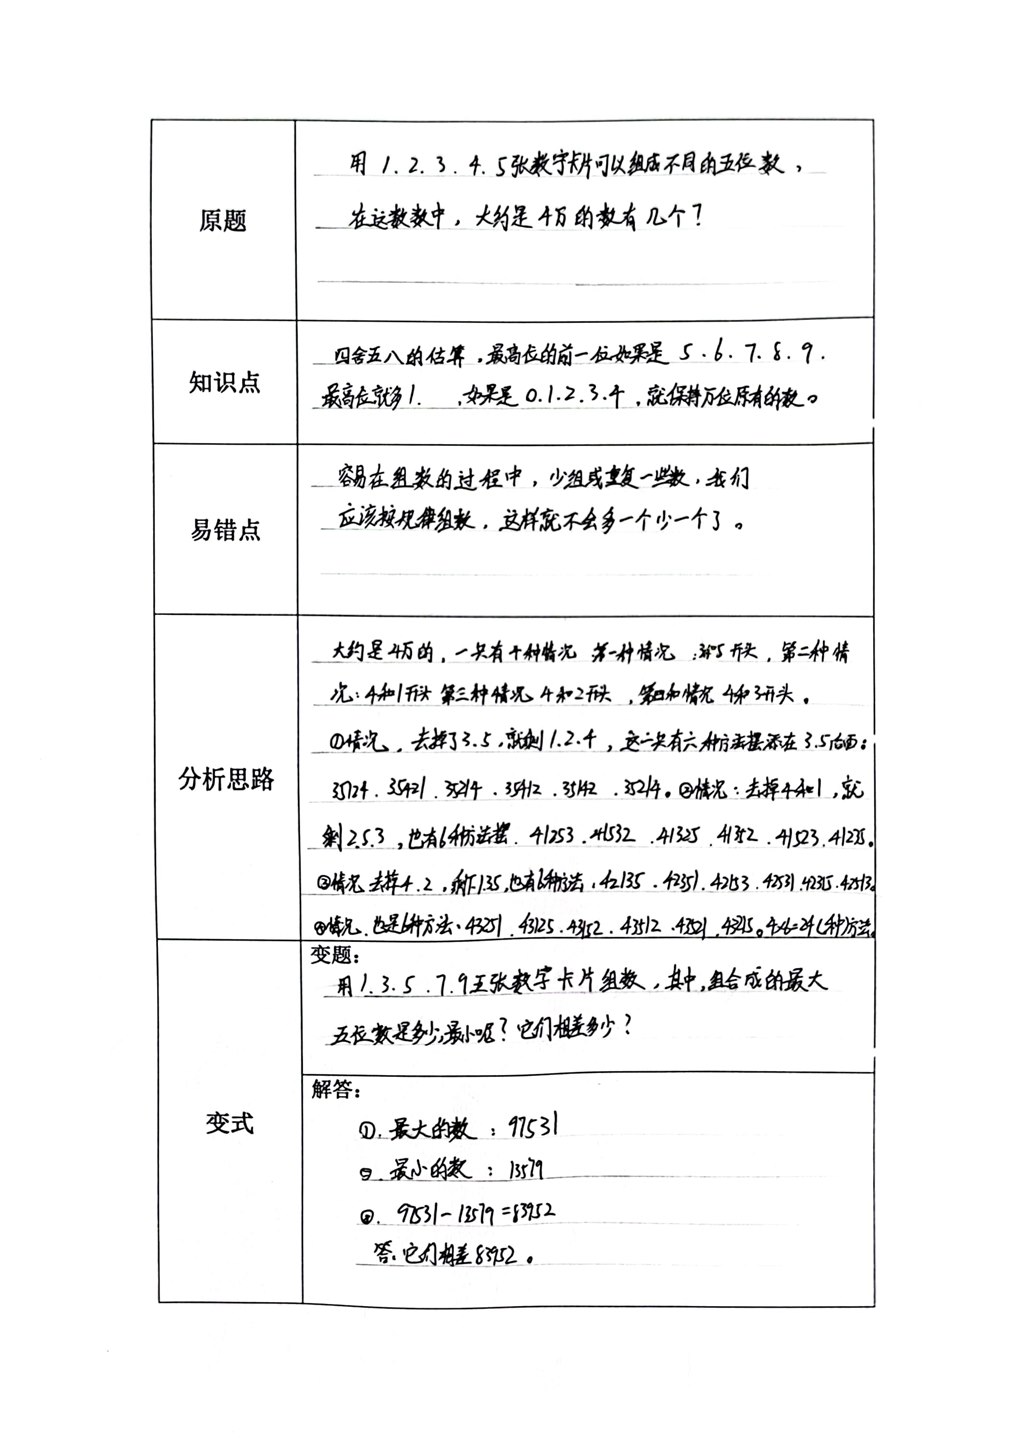 原题
用 1.2.3.4.5张数字卡片可以组成不同的五位数，
在这数数中，大约是4万的数有几个？
知识点
四舍五八的估算，最高位的前一位如果是 5.6.7.8.9.
最高位就多1. ,如果是0.1.2.3.4，就保持万位原有的数。
易错点
容易在组数的过程中，少组或重复一些数，我们
应该按规律组数，这样就不会多一个少一个了。
分析思路
大约是4万的，一共有4种情况 第一种情况 :35开头，第二种情
况：4和1开头 第三种情况 4和2开头，第四种情况 4和3开头。
①情况，去掉了3.5，就剩1.2.4，这一共有六种方法摆添在3.5后面：
35124.35421.35214.35412.35142.35214。②情况：去掉4和1，就
剩2.5.3，也有6种方法摆.41253.41532.41325.41352.41523.41235。
③情况去掉4.2，剩下135，也有6种方法，42135.42351.42153.42531.42315.42513。
④情况.也是6种方法.43251.43125.43152.43512.43521.43215。4×6=24(种方法。
变式
变题：
用1.3.5.7.9五张数字卡片组数，其中，组合成的最大
五位数是多少，最小呢？它们相差多少？
解答：
①.最大的数：97531
②.最小的数：13579
③.97531-13579=83952
答：它们相差83952。